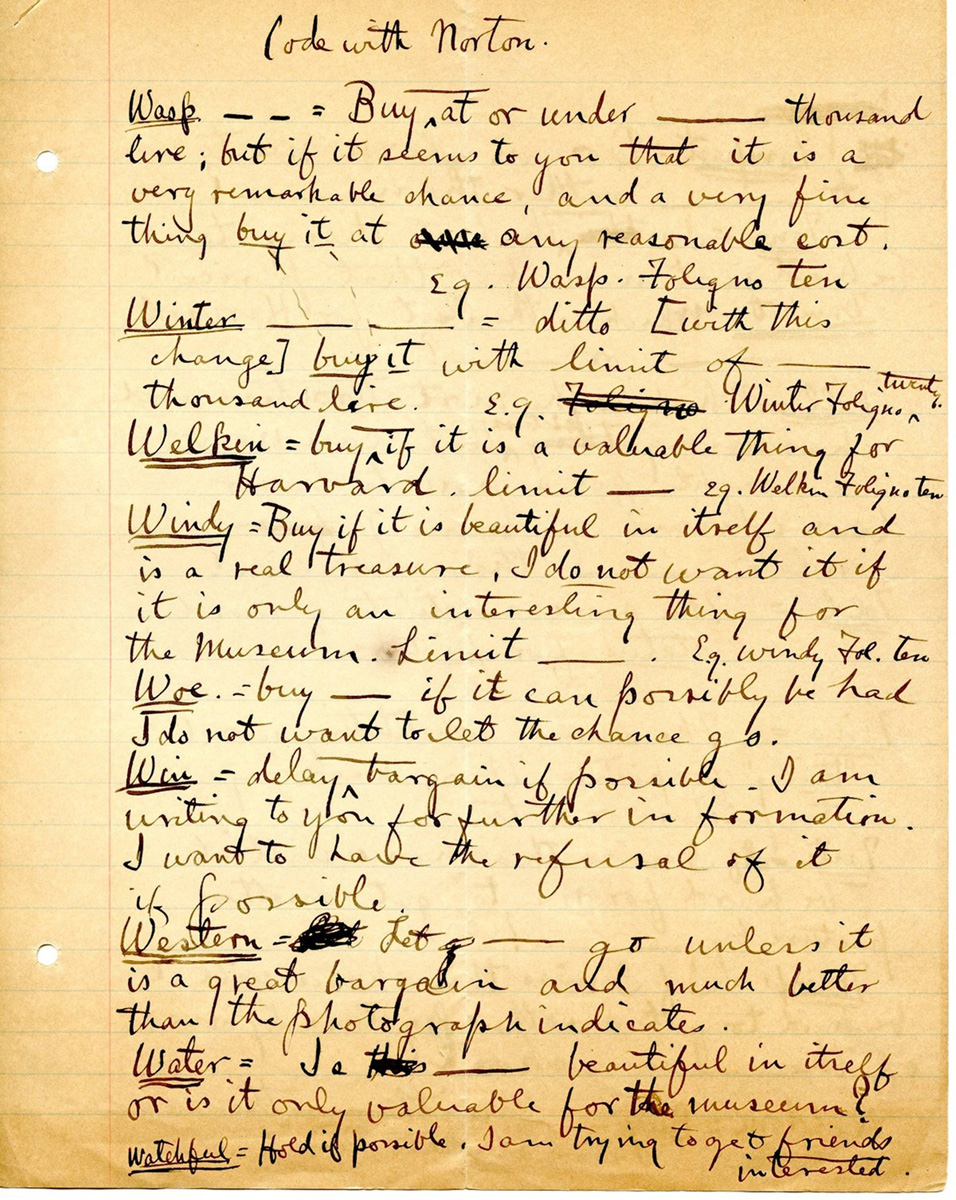 Code with Norton.
Wasp — — = Buy ‸ at or under —— thousand
lire; but if it seems to you that it is a
very remarkable chance, and a very fine
thing buy it at any reasonable cost.
Eg. Wasp. Foligno ten
Winter —— —— = ditto [with this
change] buy it with limit of ——
thousand lire. E.g. Foligno Winter Foligno ‸ twenty.
Welkin = buy ‸ if it is a valuable thing for
Harvard. limit —— eg. Welkin Foligno ten
Windy = Buy if it is beautiful in itself and
is a real treasure, I do not want it if
it is only an interesting thing for
the Museum. Limit ——. Eg. windy Fol. ten
Woe. = buy —— if it can possibly be had
I do not want to let the chance go.
Win = delay ‸ bargain if possible. I am
writing to you for further in formation.
I want to have the refusal of it
if possible.
Western = Let —— go unless it
is a great bargain and much better
than the photograph indicates.
Water = Is this —— beautiful in itself
or is it only valuable for the museum?
Watchful = Hold if possible. I am trying to get friends
interested.